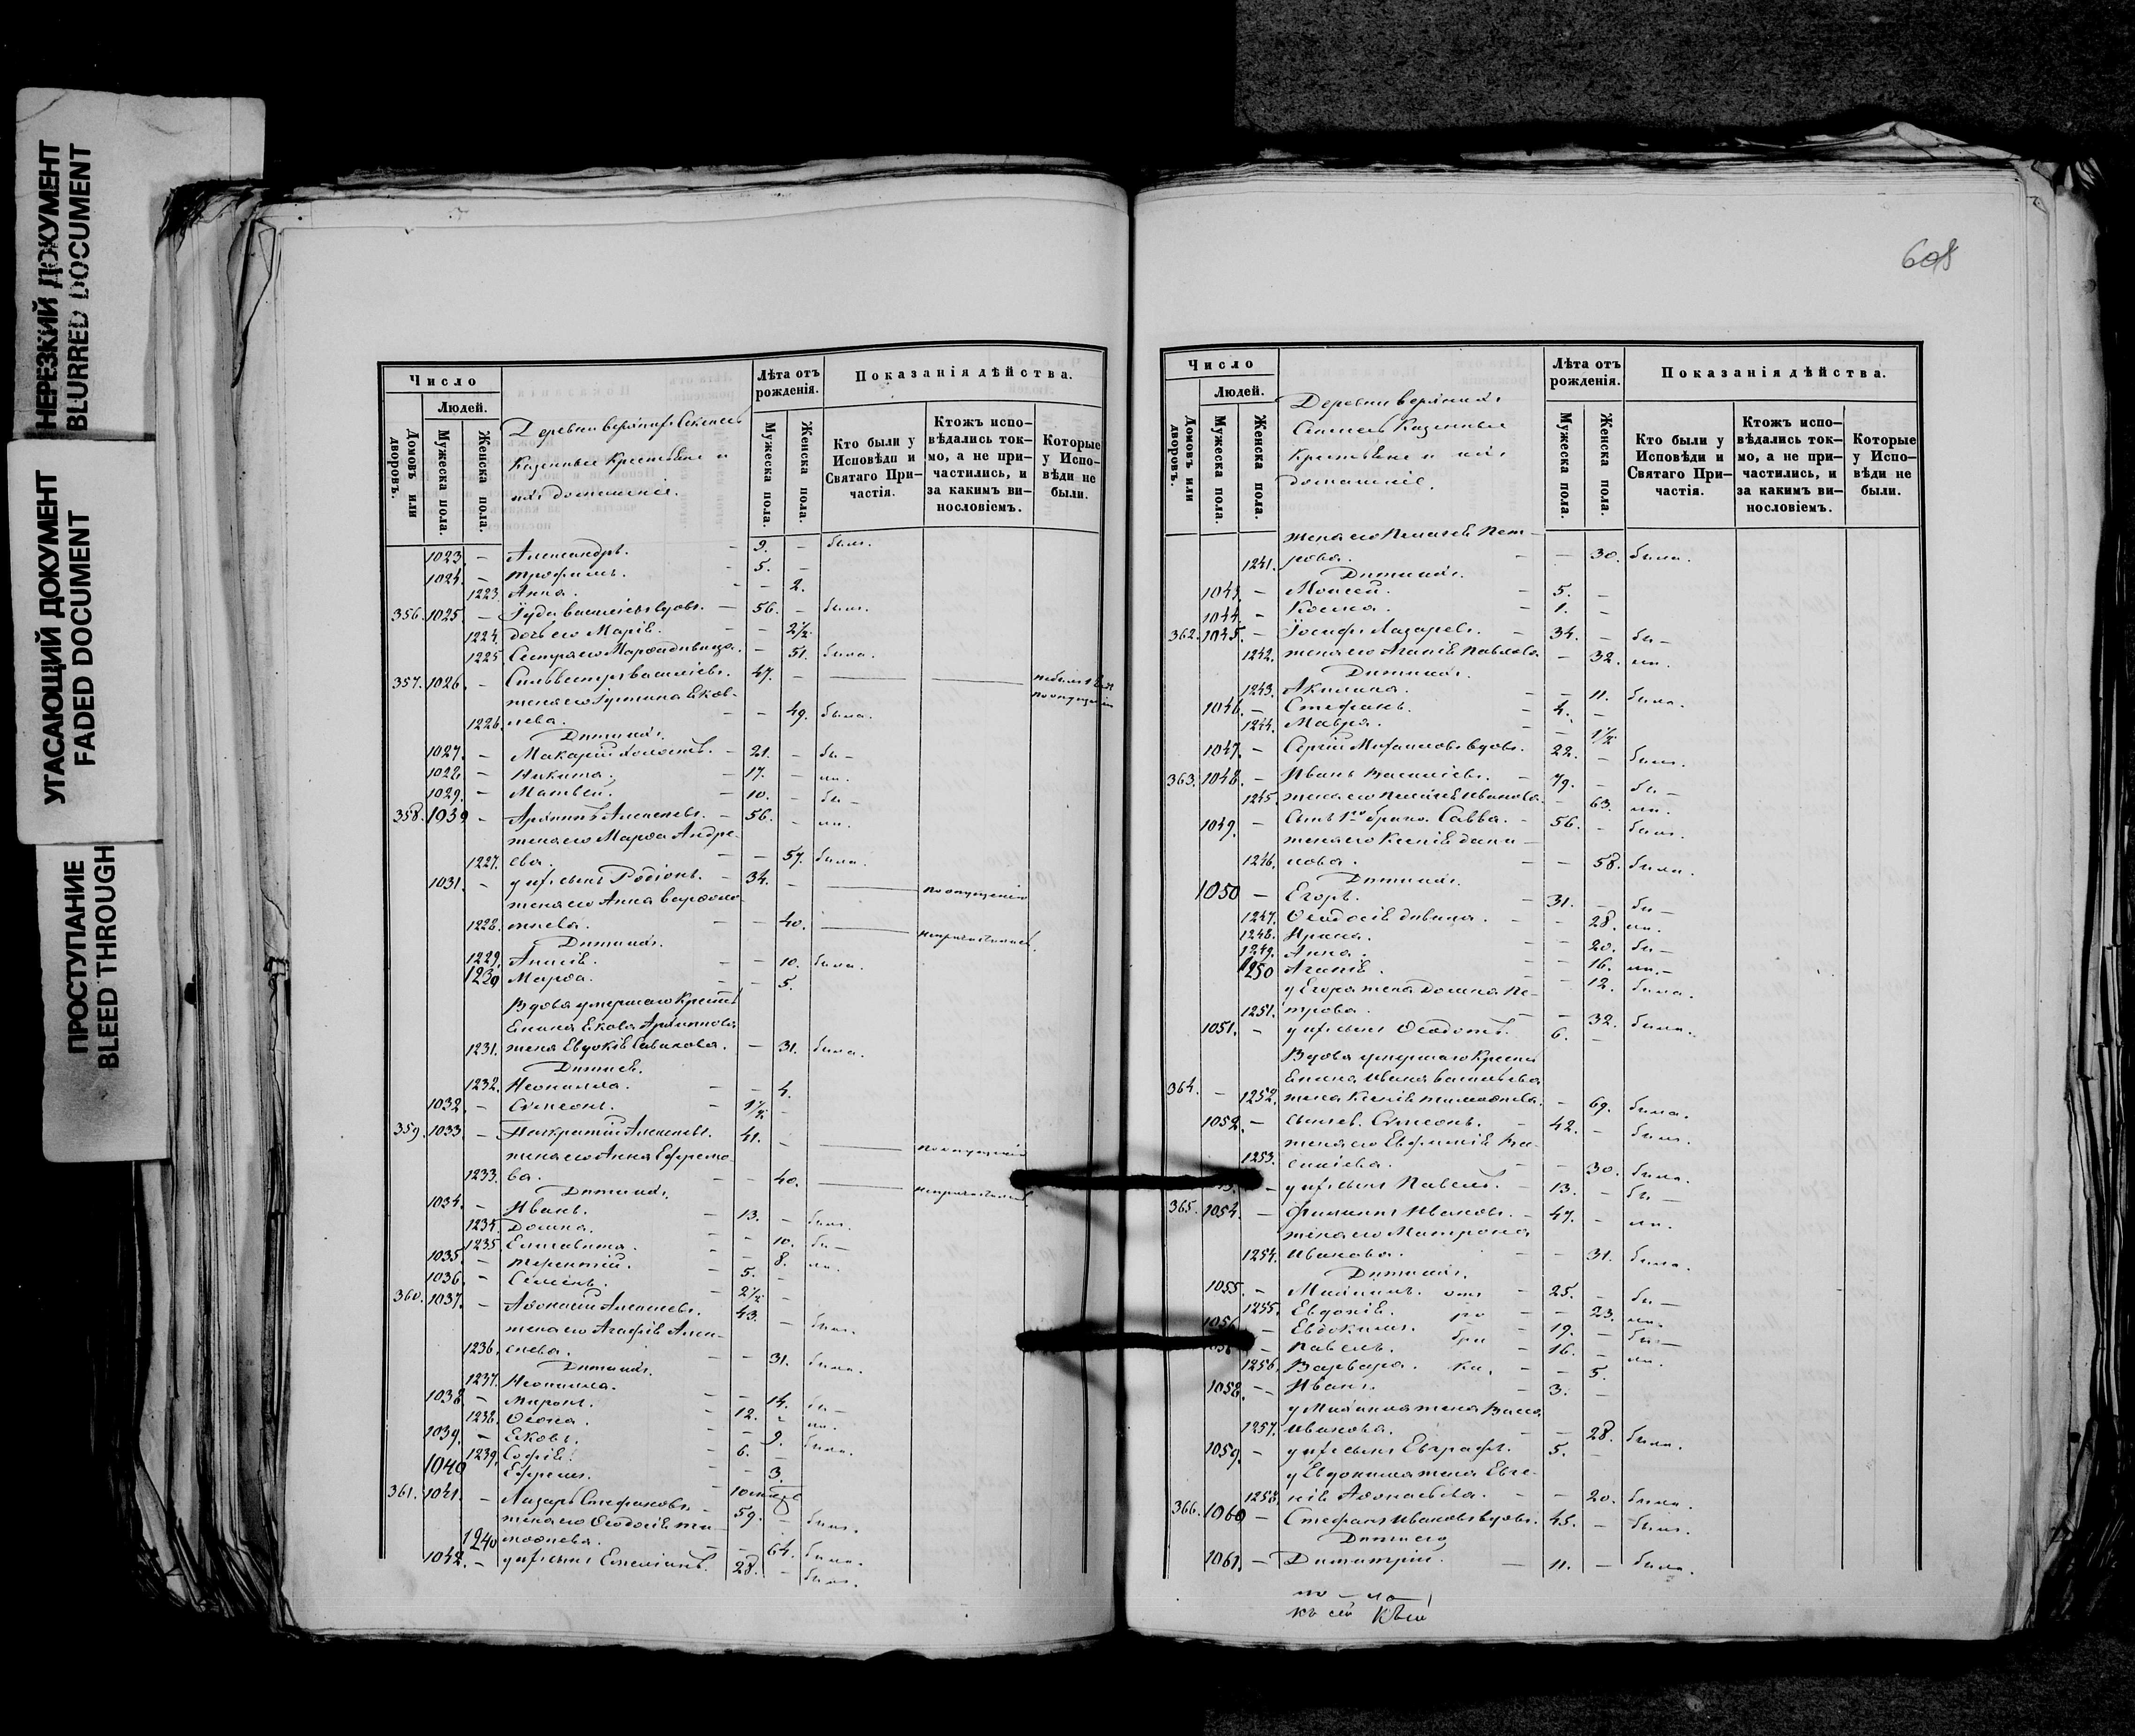 НЕРЕЗКИЙ ДОКУМЕНТ
BLURRED DOCUMENT
УГАСАЮЩИЙ ДОКУМЕНТ
FADED DOCUMENT
ПРОСТУПАНИЕ
BLEED THROUGH
Число
Людей.
Домовъ или дворовъ.
Мужеска пола.
Женска пола.
Деревни
Казенные Крестьяне и
ихъ домашніе.
Лѣта отъ рожденія.
Мужеска пола.
Женска пола.
Показанія дѣйства.
Кто были у Исповѣди и Святаго При-частія.
Ктожъ испо-вѣдались ток-мо, а не при-частились, и за какимъ ви-нословіемъ.
Которые у Испо-вѣди не были.
1023. – Александръ. – 9. – былъ.
1024. – Трофимъ. – 5. –
1223. Анна. – – 2.
356. 1025. – Іуда Василіевъ вдовъ. – 56. – былъ.
1224. дочь его Марія. – – 2½.
1225. Сестра его Марѳа дѣвица. – 51. была.
357. 1026. – Сильвестръ Василіевъ. 47. –
жена его Іустина Яков-
1226. лева. – – 49. была.
Дѣти ихъ.
1027. – Макарій холостъ. – 21. – бы –
1028. – Никита. – 17. – ли.
1029. – Матвей. – 10. – бы –
358. 1030 – Архипъ Алексеевъ. – 56. – ли.
жена его Марѳа Андре-
1227. ева. – – 57. была.
1031. – у нихъ сынъ Родіонъ. – 34. – по опущенію
жена его Анна Варѳоло-
1228. меева. – – 40.
Дѣти ихъ.
1229. Анисія. – – 10. была.
1230 Марѳа. – – 5.
Вдова умершаго Кресть
янина Якова Архипова
1231. жена Евдокія Савинова. – 31. была.
Дѣти ея.
1232. Неонилла. – – 4.
1032. – Сѵмеонъ. – 1½ –
359. 1033. – Панкратій Алексеевъ. 41. – по опущенію
жена его Анна Ефремо-
1233. ва. – – 40.
Дѣти ихъ.
1034. – Иванъ. – 13. – былъ.
1234. Домна. – – 10. бы –
1235. Елисавета. – – 8. ли.
1035. – Терентій. – 5. –
1036. – Семенъ. – 2½ –
360. 1037. – Аѳонасій Алексеевъ. 43. – былъ.
жена его Агафія Алек-
1236. сеева. – – 31. была.
Дѣти ихъ.
1237. Неонилла. – – 14. бы –
1038. – Миронъ. – 12. – ли.
1238. Ѳекла. – – 9. была.
1039. – Яковъ. – 6. –
1239. Софія. – – 3.
1040 Ефремъ.
361. 1041. – Лазарь Стефановъ – 59. – былъ.
жена его Ѳеодосія Ти-
1240 моѳеева. – – 64. была.
1042. – у нихъ сынъ Емеліанъ. 28. – былъ.
608
Число
Людей.
Домовъ или дворовъ.
Мужеска пола.
Женска пола.
Деревни
Казенные
Крестьяне и ихъ
домашніе.
Лѣта отъ рожденія.
Мужеска пола.
Женска пола.
Показанія дѣйства.
Кто были у Исповѣди и Святаго При-частія.
Ктожъ испо-вѣдались ток-мо, а не при-частились, и за какимъ ви-нословіемъ.
Которые у Испо-вѣди не были.
жена его Пелагея Пет-
1241. рова. – – 30. была.
Дѣти ихъ.
1043. – Моисей. – 5. –
1044. – Косма. – 1. –
362. 1045. – Іосифъ Лазаревъ. – 34. – бы –
1242. жена его Агапія Павлова – 32. ли.
Дѣти ихъ.
1243. Акилина. – – 11. была.
1046. – Стефанъ. – 4. –
1244. Мавра. – – 1½.
1047. – Сергій Михаиловъ вдовъ. 22. – былъ.
363. 1048. – Иванъ Василіевъ. – 79. – бы –
1245. жена его Пелагея Иванова. – 63. ли.
1049. – Сынъ 1го брака. Савва. – 56. – былъ.
жена его Ксенія Дани-
1246. лова. – – 58. была.
Дѣти ихъ.
1050 – Егоръ. – 31. – бы –
1247. Ѳеодосія дѣвица. – – 28. ли.
1248. Ирина. – – 20. бы –
1249. Анна. – – 16. ли. –
1250 Агапія. – – 12. была.
у Егора жена Домна Пе-
1251. трова. – – 32. была.
1051. – у нихъ сынъ Ѳеодотъ. 6. –
Вдова умершаго Кресть
янина Ивана Васильева
364. – 1252. жена Ксенія Тимоѳеева. – 69. была.
1052. – сынъ ея. Сѵмеонъ. – 42. – былъ.
жена его Евфимія Ва-
1253. силіева. – – 30. была.
– у нихъ сынъ Павелъ. – 13. – бы –
365. 1054. – Филиппъ Ивановъ. – 47. – ли.
жена его Матрона
1254. Иванова. – – 31. была.
Дѣти ихъ.
1055. – Михаилъ. – 25. – бы –
1255. Евдокія. – – 23. ли.
1056 – Евдокимъ. – 19. – бы –
– Павелъ. – 16. – ли.
1256. Варвара. – – 5.
1058. – Иванъ. – 3. –
у Михаила жена Васса
1257. Иванова. – – 28. была.
1059. – у нихъ сынъ Евграфъ. 5. –
у Евдокима жена Евге-
1258. нія Аѳонасьева. – – 20. была.
366. 1060 – Стефанъ Ивановъ вдовъ. 45. – былъ.
Дѣти его
1061. – Димитрій. – 11. – была.